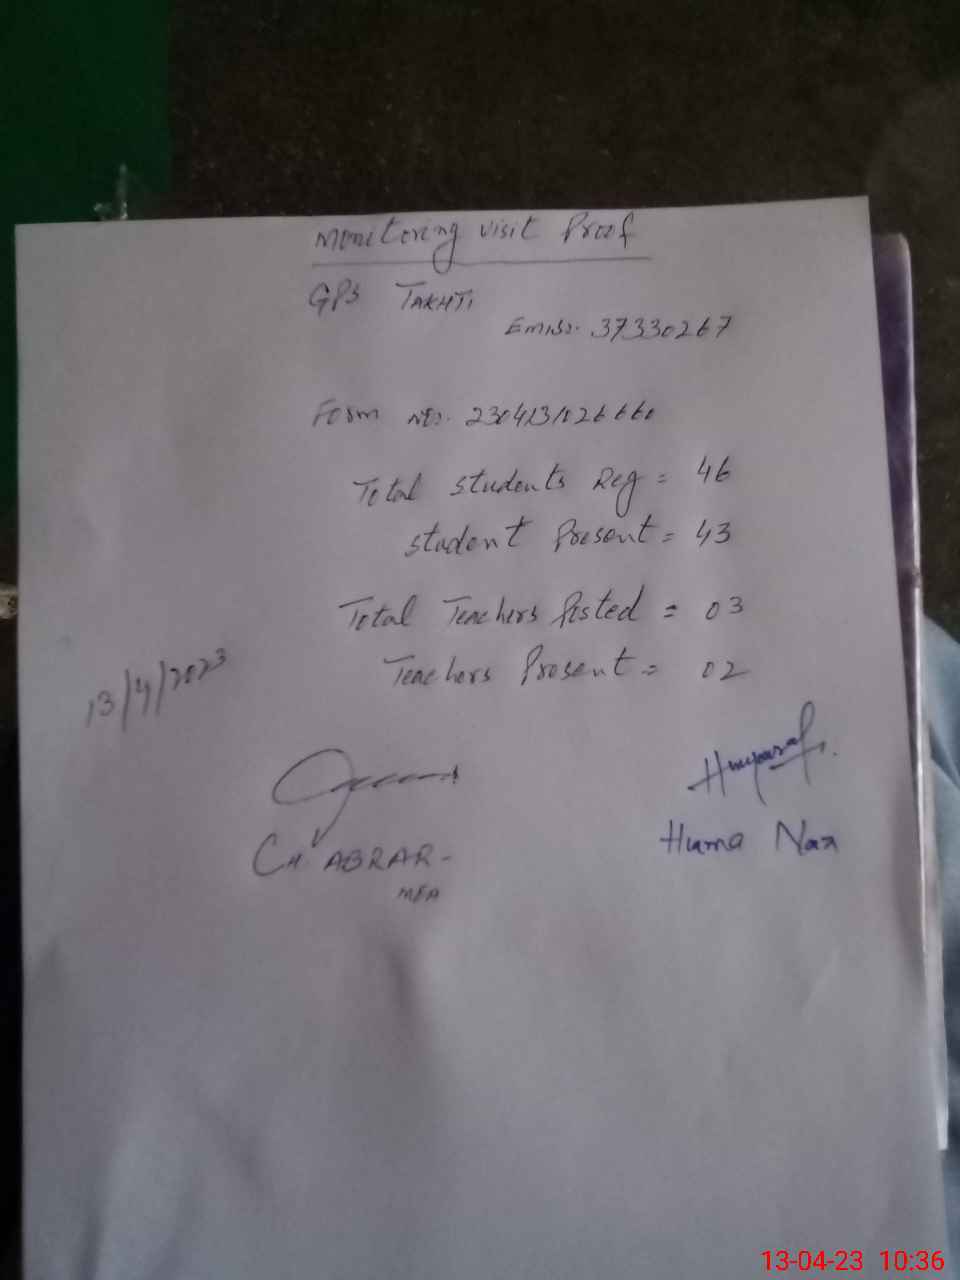 Monitoring visit Proof
GPS TAKHTI
Emis: 37330267
Form No: 230413102666​0
Total Students Reg = 46
Student Present = 43
Total Teachers Posted = 03
Teachers Present = 02
13/4/2023
CH ABRAR
MEA
Huma Naz
13-04-23 10:36